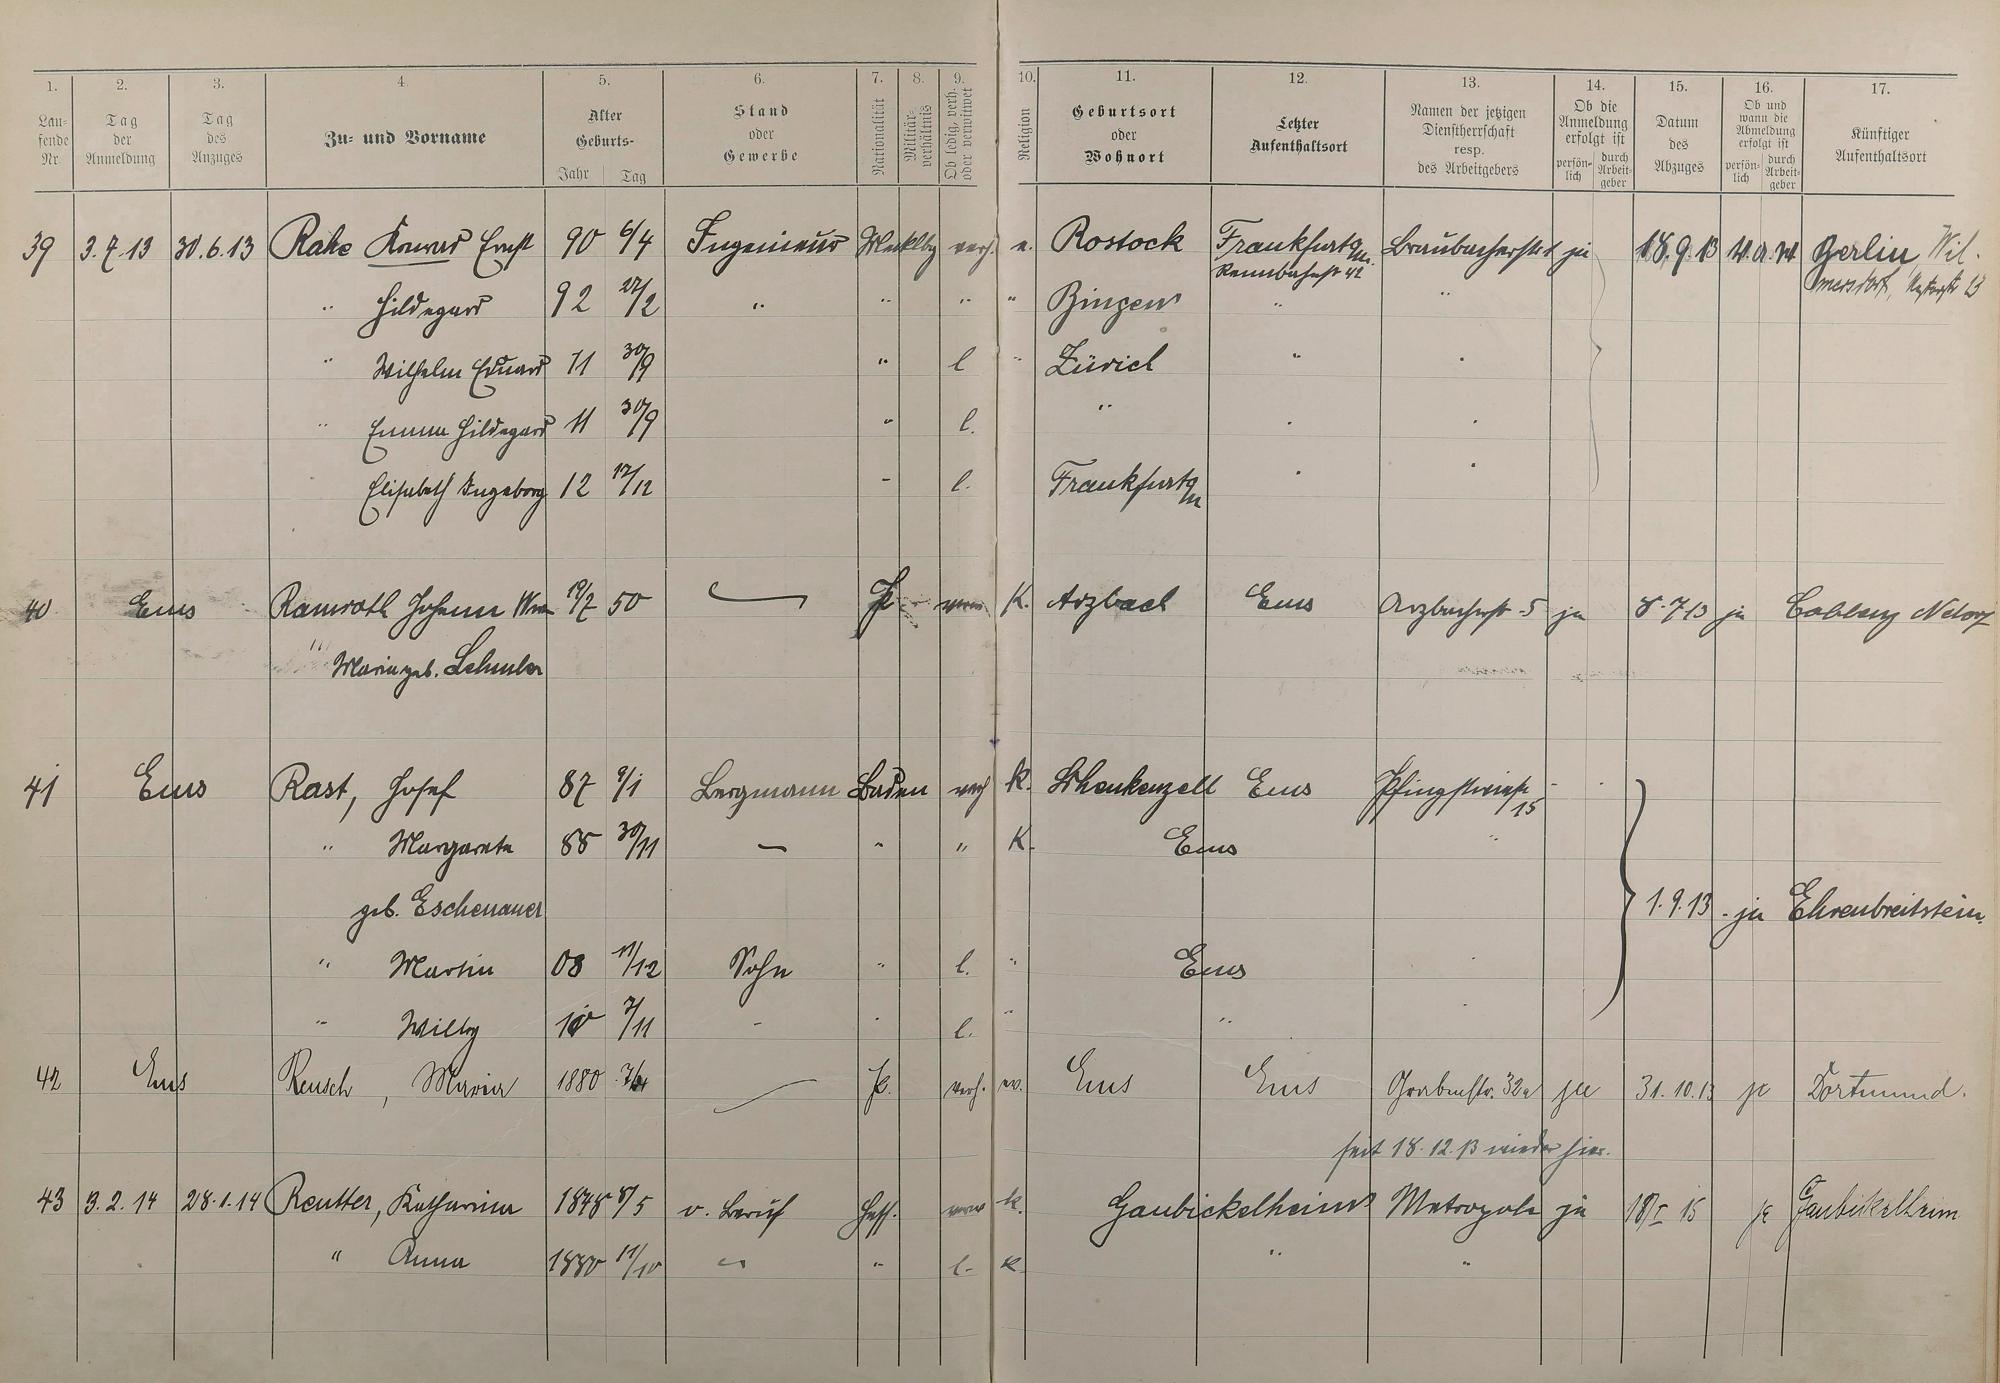 1. 2. 3. 4. 5. 6. 7. 8. 9. 10. 11. 12. 13. 14. 15. 16. 17.
Laufende Nr. Tag der Anmeldung Tag des Anzuges Zu- und Vorname Alter Geburts- Jahr Tag Stand oder Gewerbe Nationalität Militärverhältnis Ob ledig, verh. oder verwitwet Religion Geburtsort oder Wohnort Letzter Aufenthaltsort Namen der jetzigen Dienstherrschaft resp. des Arbeitgebers Ob die Anmeldung erfolgt ist persönlich durch Arbeitgeber Datum des Abzuges Ob und wann die Abmeldung erfolgt ist persönlich durch Arbeitgeber Künftiger Aufenthaltsort
39 3.7.13 30.6.13 Rahe Konrad Ernst 90 6/4 Ingenieur Mecklbg verh. e. Rostock Frankfurt a/M. Braubacherstr 1 ja 18.9.13 Berlin Wil-
Rennbahnstr 42 mersdorf,
" Hildegard 92 27/2 " " " " Bingen " "
" Wilhelm Eduard 11 30/9 " l " Zürich " "
" Emma Hildegard 11 30/9 " l. " " "
Elisabeth Ingeborg 12 17/12 " l. Frankfurt a/M " "
40 Ems Ramroth Johann Wwe 19/7 50 — P. K. Arzbach Ems Arzbacherstr. 5 ja 8.7.13 ja Coblenz
" Maria geb.
41 Ems Rast, Josef 87 9/1 Bergmann Baden verh K. Schenkenzell Ems Pfingstwiese 15
" Margareta 88 30/11 — " " K. Ems "
geb. Eschenauer 1.9.13 - ja Ehrenbreitstein.
" Martin 08 11/12 Sohn " l. " Ems "
" Willy 10 7/11 " " l. " " "
42 Ems Reusch, Maria 1880 — P. verh. ev. Ems Ems Grabenstr. 32a ja 31.10.13 ja Dortmund.
seit 18.12.13 wieder hier.
43 3.2.14 28.1.14 Reutter, Katharina 1848 8/5 o. Beruf Hess. verw k. Gaubickelheim Metropole ja 18/I 15 ja Gaubickelheim
" Anna 1880 11/10 " " l. K. " "